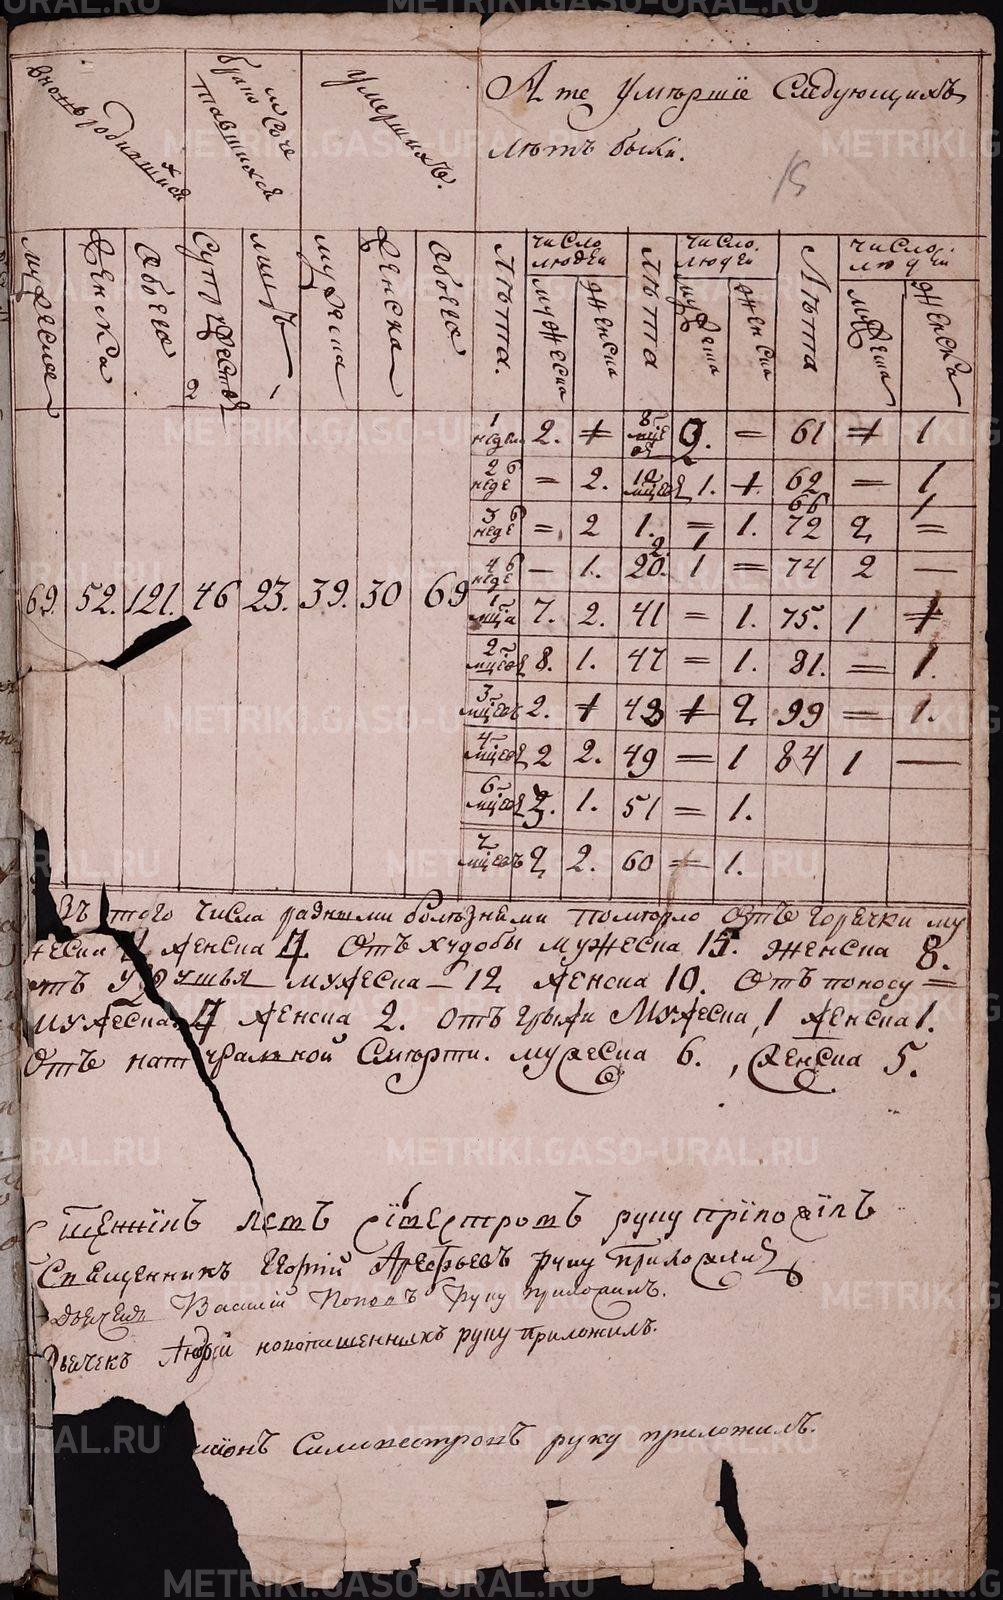 вновь родившихся
браносочетавшихся
умершихъ.
А те умершïе следующихъ
летъ были.
15
мужеска
женска
обоего
супружествъ
лицъ
мужеска
женска
обоего
Лѣта.
число людей
мужеска
женска
Лѣта
число. людей
мужеска
женска
Лѣта
число. людей
мужеска
женска
1 недел 2. + 8 мцов 2. = 61 + 1
2 неде = 2. 10 мцов 1. + 62 — 1
66 1
3 неде = 2 1. = 1. 72 2 =
2 1
4 неде — 1. 20. 1 = 74 2 —
69. 52. 121. 46 23. 39. 30 69
1 мца 7. 2. 41 = 1. 75. 1 +
2 мцов 8. 1. 47 = 1. 81. = 1.
3 мцовъ 2. + 43 + 2 99 — 1.
4 мцов 2 2. 49 = 1 84 1 —
6 мцов 3. 1. 51 = 1.
мцовъ 2 2. 60 + 1.
того числа разными болѣзнями померло отъ горячки му
жеска женска 4. отъ худобы мужеска 15. женска 8.
отъ удушья мужеска — 12 женска 10. отъ поносу =
мужеска женска 2. отъ грыжи мужеска, 1 женска 1.
отъ натуральной смерти. мужеска 6., женска 5.
руку прïложïлъ
Священникъ Георгïй Арефьевъ руку приложилъ
Василïй Поповъ руку приложилъ.
Дьячекъ Андрей руку приложилъ.
Силивестровъ руку приложилъ.
METRIKI.GASO-URAL.RU